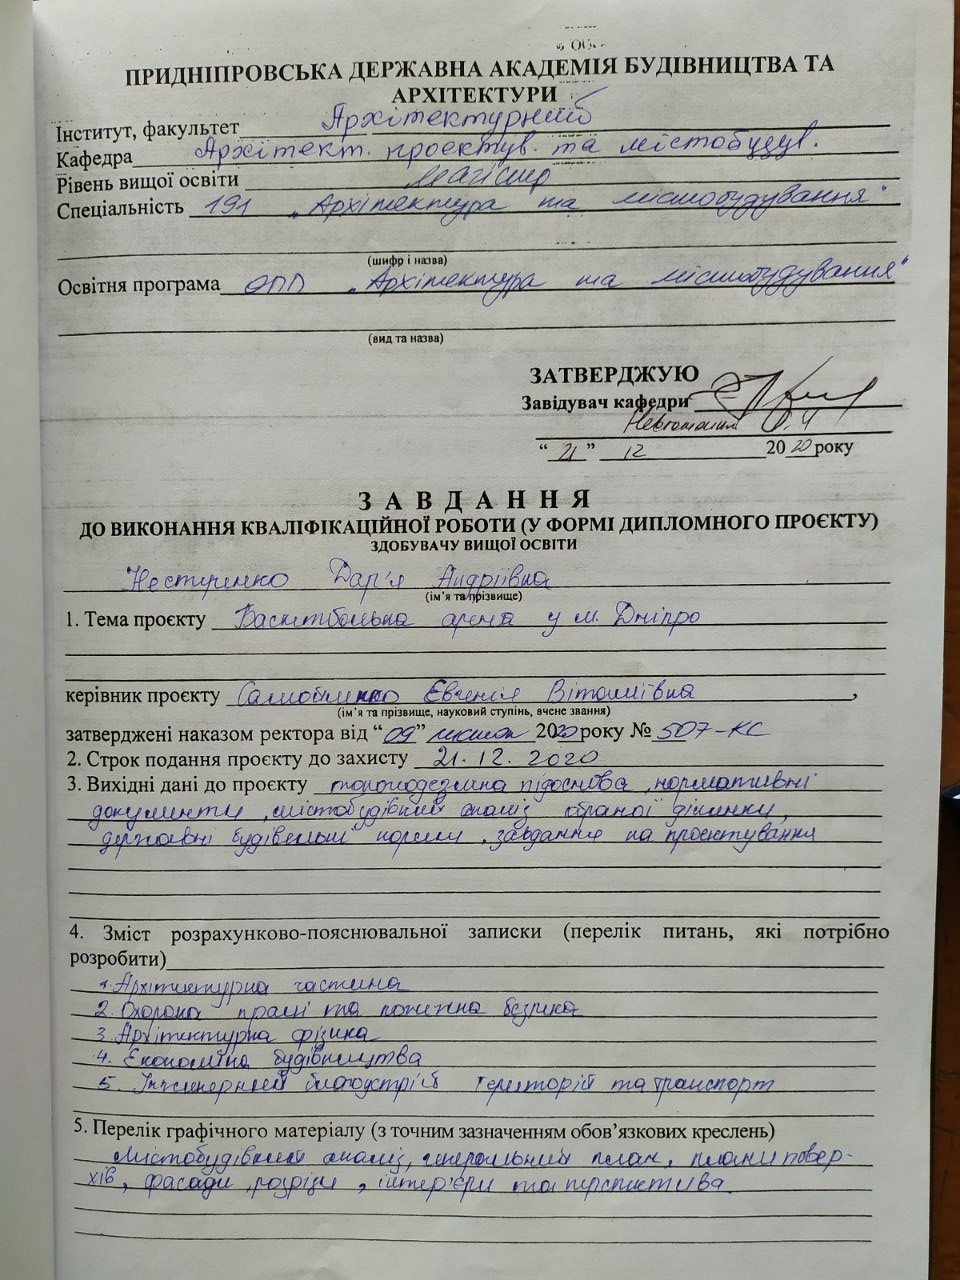 ПРИДНІПРОВСЬКА ДЕРЖАВНА АКАДЕМІЯ БУДІВНИЦТВА ТА
АРХІТЕКТУРИ
Інститут, факультет Архітектурний
Кафедра Архітект. проектув. та містобудув.
Рівень вищої освіти магістр
Спеціальність 191 „Архітектура та містобудування"
(шифр і назва)
Освітня програма ОПП „Архітектура та містобудування"
(вид та назва)
ЗАТВЕРДЖУЮ
Завідувач кафедри
“ 21 ” 12 2020 року
З А В Д А Н Н Я
ДО ВИКОНАННЯ КВАЛІФІКАЦІЙНОЇ РОБОТИ (У ФОРМІ ДИПЛОМНОГО ПРОЄКТУ)
ЗДОБУВАЧУ ВИЩОЇ ОСВІТИ
Нестеренко Дар'я Андріївна
(ім’я та прізвище)
1. Тема проєкту Баскетбольна арена у м. Дніпро
керівник проєкту Самойленко Євгенія Віталіївна,
(ім’я та прізвище, науковий ступінь, вчене звання)
затверджені наказом ректора від “09” 2020 року № 507-КС
2. Строк подання проєкту до захисту 21.12.2020
3. Вихідні дані до проєкту топогеодезична підоснова, нормативні
документи, містобудівний аналіз обраної ділянки,
державні будівельні норми, завдання на проєктування
4. Зміст розрахунково-пояснювальної записки (перелік питань, які потрібно
розробити)
1. Архітектурна частина
2. Охорона праці та пожежна безпека
3. Архітектурна фізика
4. Економіка будівництва
5. Інженерний благоустрій територій та транспорт
5. Перелік графічного матеріалу (з точним зазначенням обов’язкових креслень)
Містобудівний аналіз, генеральний план, плани повер-
хів, фасади, розрізи, інтер'єри та перспектива.